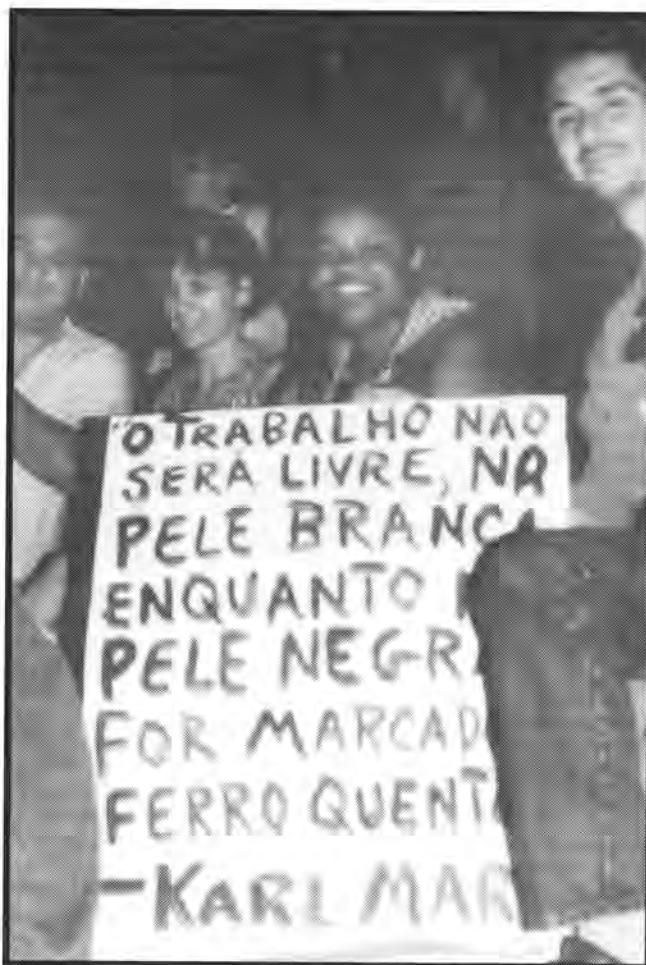 "O TRABALHO NAO
SERÁ LIVRE, NA
PELE BRANCA
ENQUANTO
PELE NEGR
FOR MARCAD
FERRO QUENT
-KARL MAR